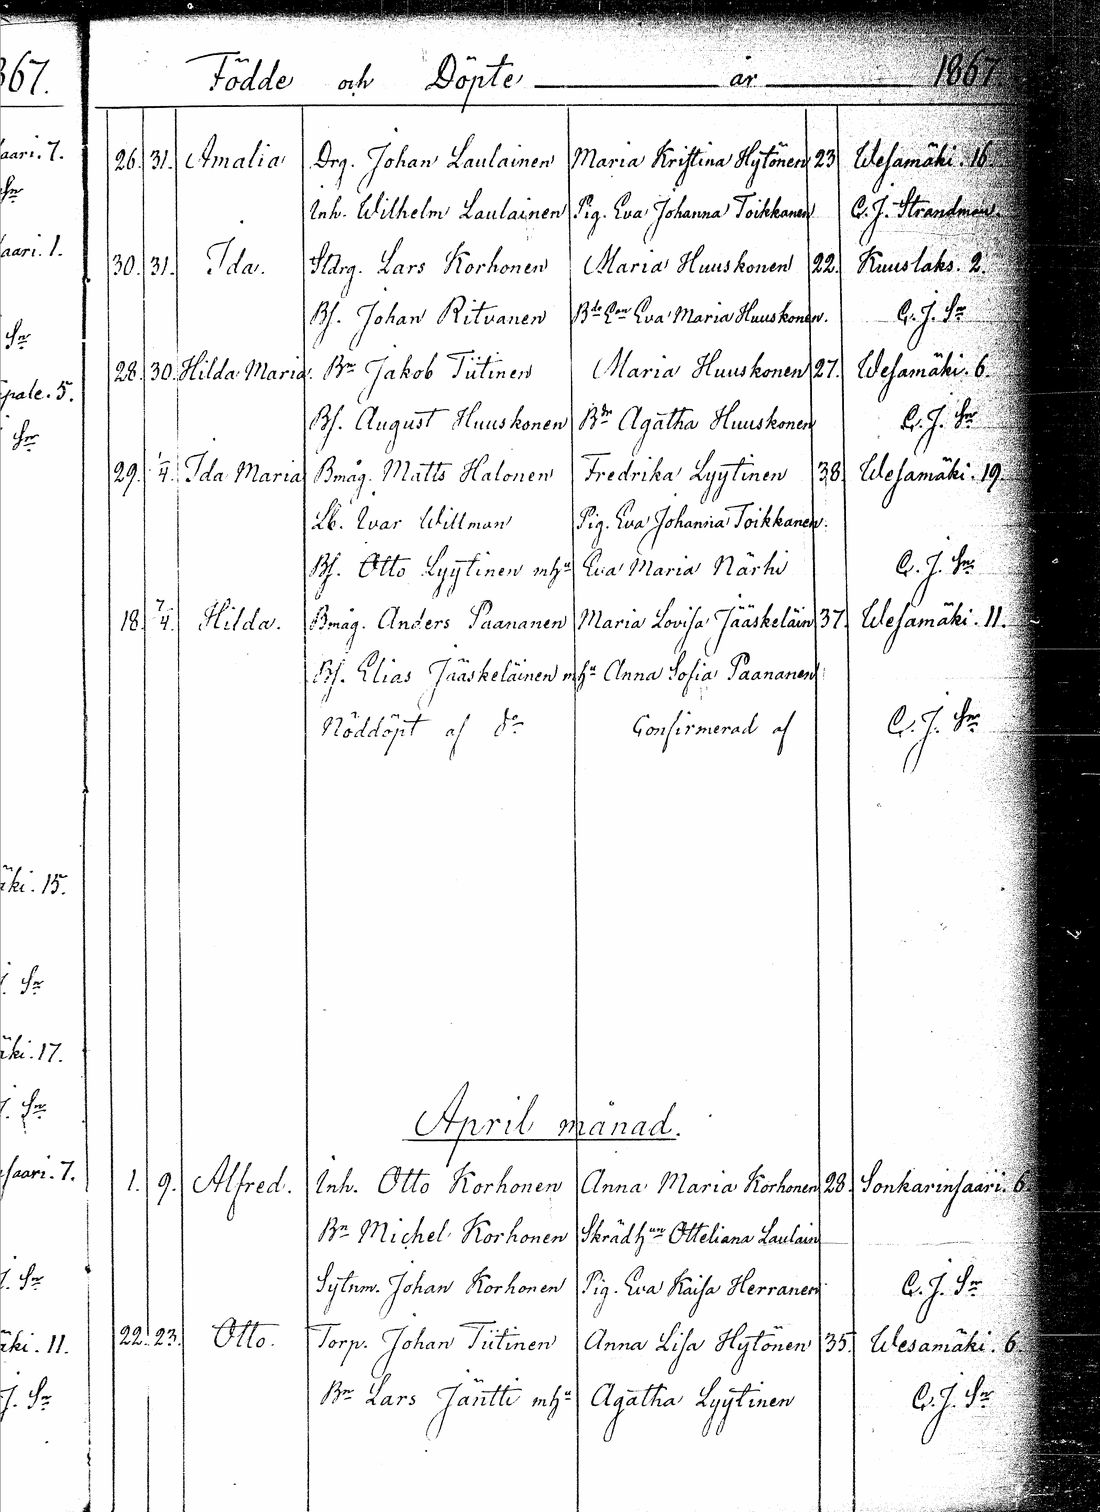 867.
Födde och Döpte år 1867.
aari. 7.
26. 31. Amalia Drg. Johan Laulainen Maria Kristina Hytönen 23 Wesamäki. 16
Sn
Inh. Wilhelm Laulainen Pig. Eva Johanna Toikkanen C. J. Strandman.
aari. 1.
30. 31. Ida. Stdrg. Lars Korhonen Maria Huuskonen 22. Kuuslaks. 2.
Sn
Bs. Johan Ritvanen Eva Maria Huuskonen. C. J. Sn
28. 30. Hilda Maria. Bn Jakob Tiitinen Maria Huuskonen 27. Wesamäki. 6.
pale. 5.
Sn
Bs. August Huuskonen Bdr Agatha Huuskonen C. J. Sn
29. 1/4. Ida Maria Bmåg. Matts Halonen Fredrika Lyytinen 38. Wesamäki. 19.
Lb. Ivar Willman Pig. Eva Johanna Toikkanen.
Bs. Otto Lyytinen mhu Eva Maria Närhi C. J. Sn
18. 7/4. Hilda. Bmåg. Anders Paananen Maria Lovisa Jääskeläin 37. Wesamäki. 11.
Bs. Elias Jääskeläinen mhu Anna Sofia Paananen
Nöddöpt af do Confirmerad af C. J. Sn
äki. 15.
J. Sn
äki. 17.
J. Sn
April månad.
saari. 7.
1. 9. Alfred. Inh. Otto Korhonen Anna Maria Korhonen 28. Sonkarinsaari. 6.
Bn Michel Korhonen Otteliana Laulain
J. Sn
Sytnm. Johan Korhonen Pig. Eva Kaisa Herranen C. J. Sn
äki. 11.
22. 23. Otto. Torp. Johan Tiitinen Anna Lisa Hytönen 35. Wesamäki. 6
J. Sn
Bn Lars Jäntti mhu Agatha Lyytinen C. J. Sn